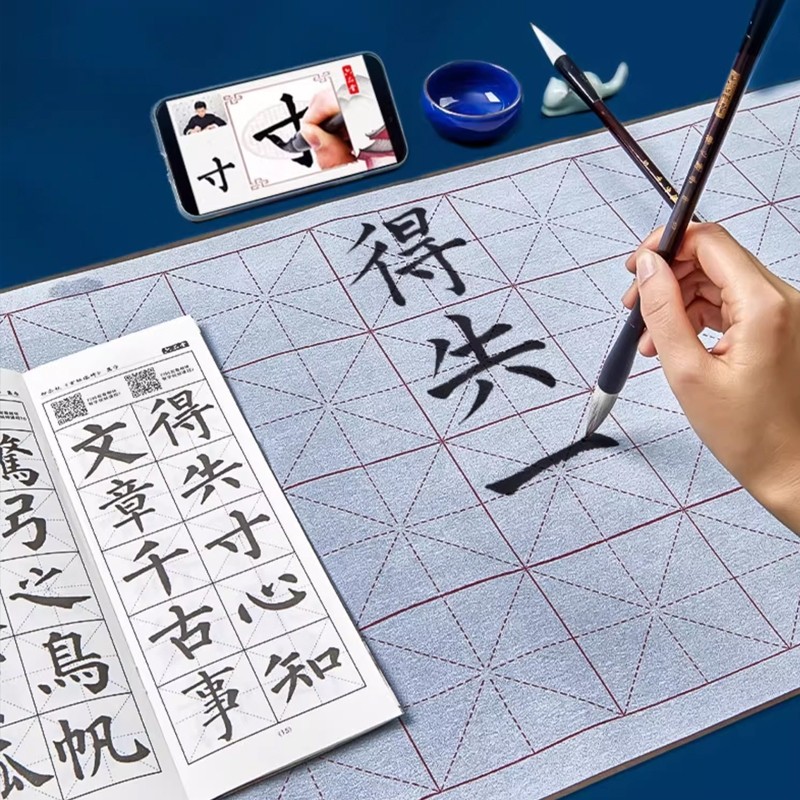 寸
寸
得失
一
文章千古事
得失寸心知
(15)
驚弓之鳥
帆